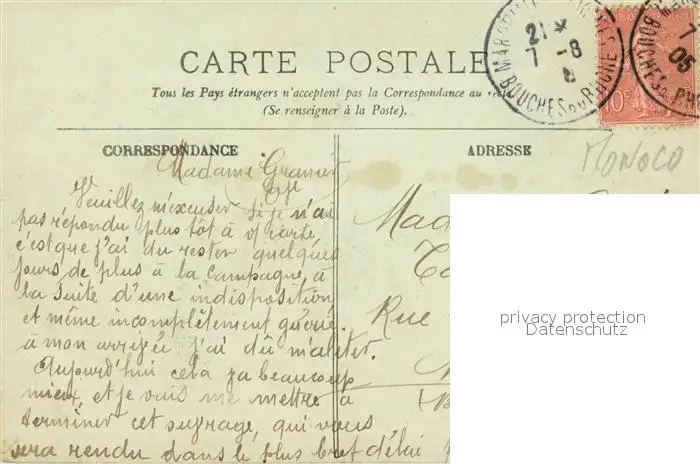 CARTE POSTALE
Tous les Pays étrangers n'acceptent pas la Correspondance au
(Se renseigner à la Poste).
CORRESPONDANCE
ADRESSE
MONOCO
21 *
7 - 8
BOUCHES DU RHONE
7
05
BOUCHES
10c
Madame
Veuillez m'excuser si je n'ai
pas répondu plus tôt à v/ carte,
c'est que j'ai du rester quelques
jours de plus à la campagne, à
la suite d'une indisposition,
et même incomplètement guérie,
à mon arrivée j'ai dû m'aliter.
Aujourd'hui cela va beaucoup
mieux, et je vais me mettre à
terminer cet ouvrage, qui vous
sera rendu dans le plus bref délai
Mad
Rue
privacy protection
Datenschutz